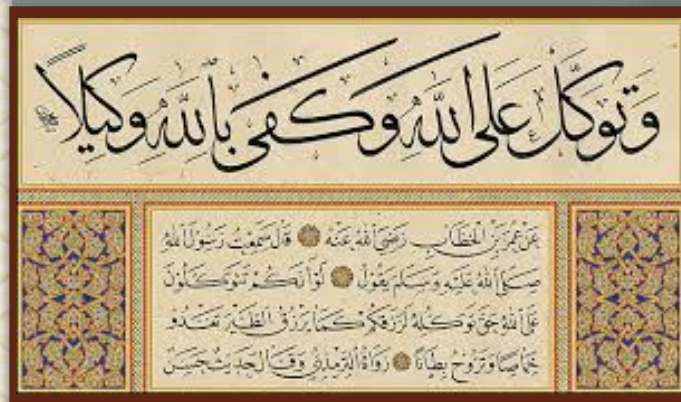 وَتَوَكَّلْ عَلَى اللَّهِ وَكَفَى بِاللَّهِ وَكِيلًا
عَنْ عُمَرَ بْنِ الْخَطَّابِ رَضِيَ اللهُ عَنْهُ قَالَ سَمِعْتُ رَسُولَ اللهِ
صَلَّى اللهُ عَلَيْهِ وَسَلَّمَ يَقُولُ لَوْ أَنَّكُمْ تَتَوَكَّلُونَ
عَلَى اللهِ حَقَّ تَوَكُّلِهِ لَرَزَقَكُمْ كَمَا يَرْزُقُ الطَّيْرَ تَغْدُو
خِمَاصًا وَتَرُوحُ بِطَانًا رَوَاهُ التِّرْمِذِيُّ وَقَالَ حَدِيثٌ حَسَنٌ